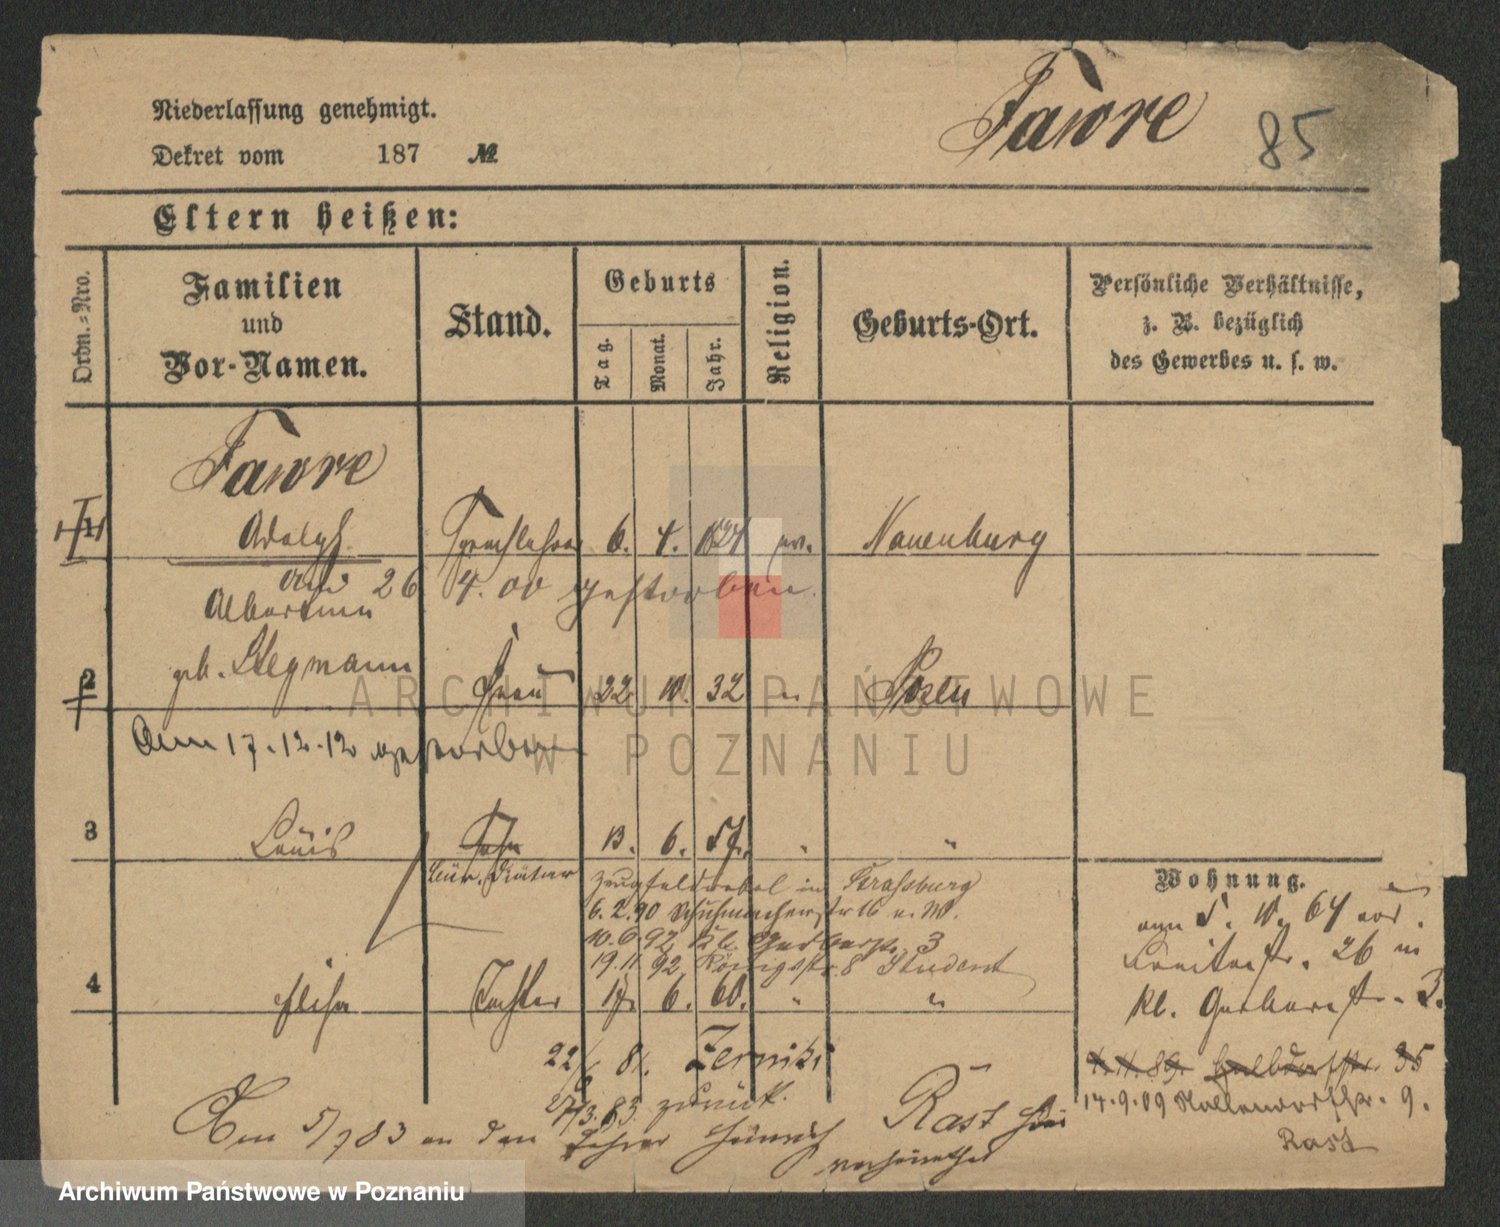 Fawre 85
Niederlassung genehmigt.
Dekret vom 187 №
Eltern heißen:
Ordn.-Nro.
Familien
und
Vor-Namen.
Stand.
Geburts
Tag.
Monat.
Jahr.
Religion.
Geburts-Ort.
Persönliche Verhältnisse,
z. B. bezüglich
des Gewerbes u. s. w.
Fawre
1 Adolph Sprachlehrer 6. 4. 1824 ev. Neuenburg
26 4. 00 gestorben.
Albertine
geb. Stegmann
2 Frau 22 10. 32 " Posen
Am 17.12.12 gestorben
3 Louis Sohn 13. 6. 57. " "
Zeugfeldwebel in Strassburg
6.2.90 Schuhmacherstr 16
10.6.92 Kl. Gerberstr. 3
19.11.92 Königsstr. 8 Student
4 Elise Tochter 17. 6. 60. " "
Wohnung.
5. 10. 64
Breitestr. 26 in
Kl. Gerberstr. 3.
35
14.9.09 9.
Rast
22/ 81. Zerniki
zurück.
Am 5/7 83 an den Lehrer Heinrich Rast
verheirathet
ARCHIWUM PAŃSTWOWE
W POZNANIU
Archiwum Państwowe w Poznaniu